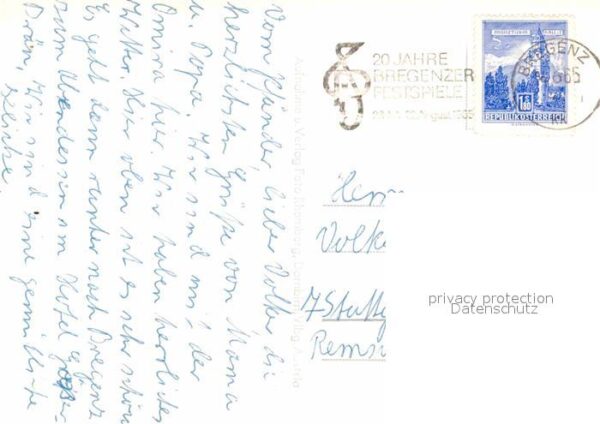 Vom Pfänder, lieber Volker die
herzlichsten Grüße von Mama
u. Papa. Wir sind mit der
Omira hier. Wir haben herrliches
Wetter. Hier oben ist es sehr schön
Es geht dann runter nach Bregenz
zum Abendessen im Hotel
Wir sind eine gemütliche
20 JAHRE
BREGENZER
FESTSPIELE
1965
BREGENZ
REPUBLIK ÖSTERREICH
Herrn
Volke
7 Stuttg
Rems
privacy protection
Datenschutz